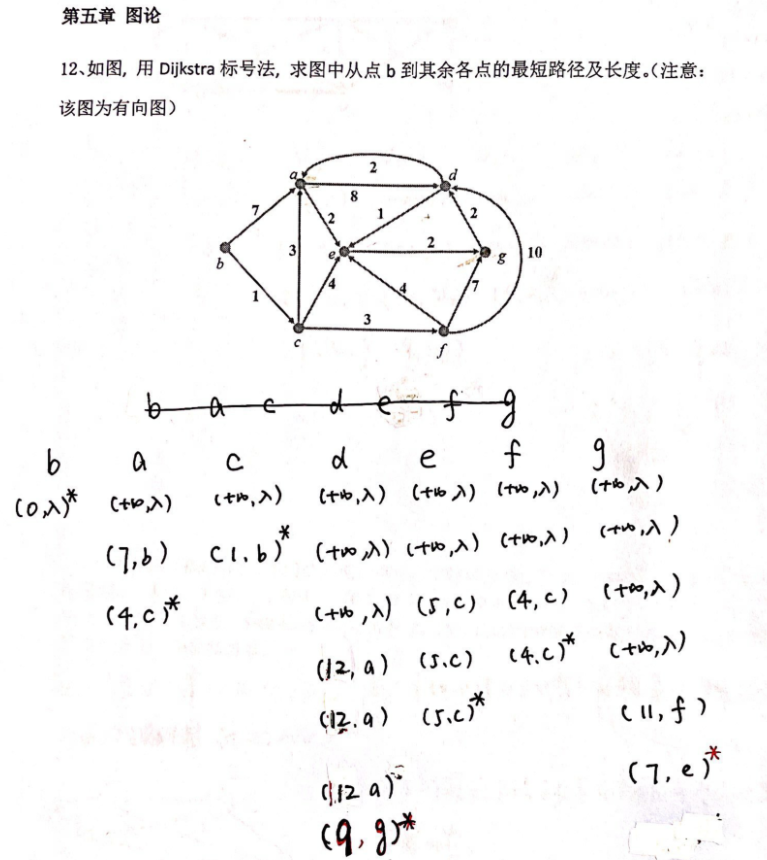 第五章 图论
12、如图, 用 Dijkstra 标号法, 求图中从点 b 到其余各点的最短路径及长度。(注意:
该图为有向图)
2
a d
8
7 2 1 2
3 e 2 g 10
b
1 4 4 7
3
c f
b a c d e f g
b a c d e f g
(0,λ)* (+∞,λ) (+∞,λ) (+∞,λ) (+∞,λ) (+∞,λ) (+∞,λ)
(7,b) (1,b)* (+∞,λ) (+∞,λ) (+∞,λ) (+∞,λ)
(4,c)* (+∞,λ) (5,c) (4,c) (+∞,λ)
(12,a) (5,c) (4,c)* (+∞,λ)
(12,a) (5,c)* (11,f)
(12 a) (7,e)*
(9,g)*